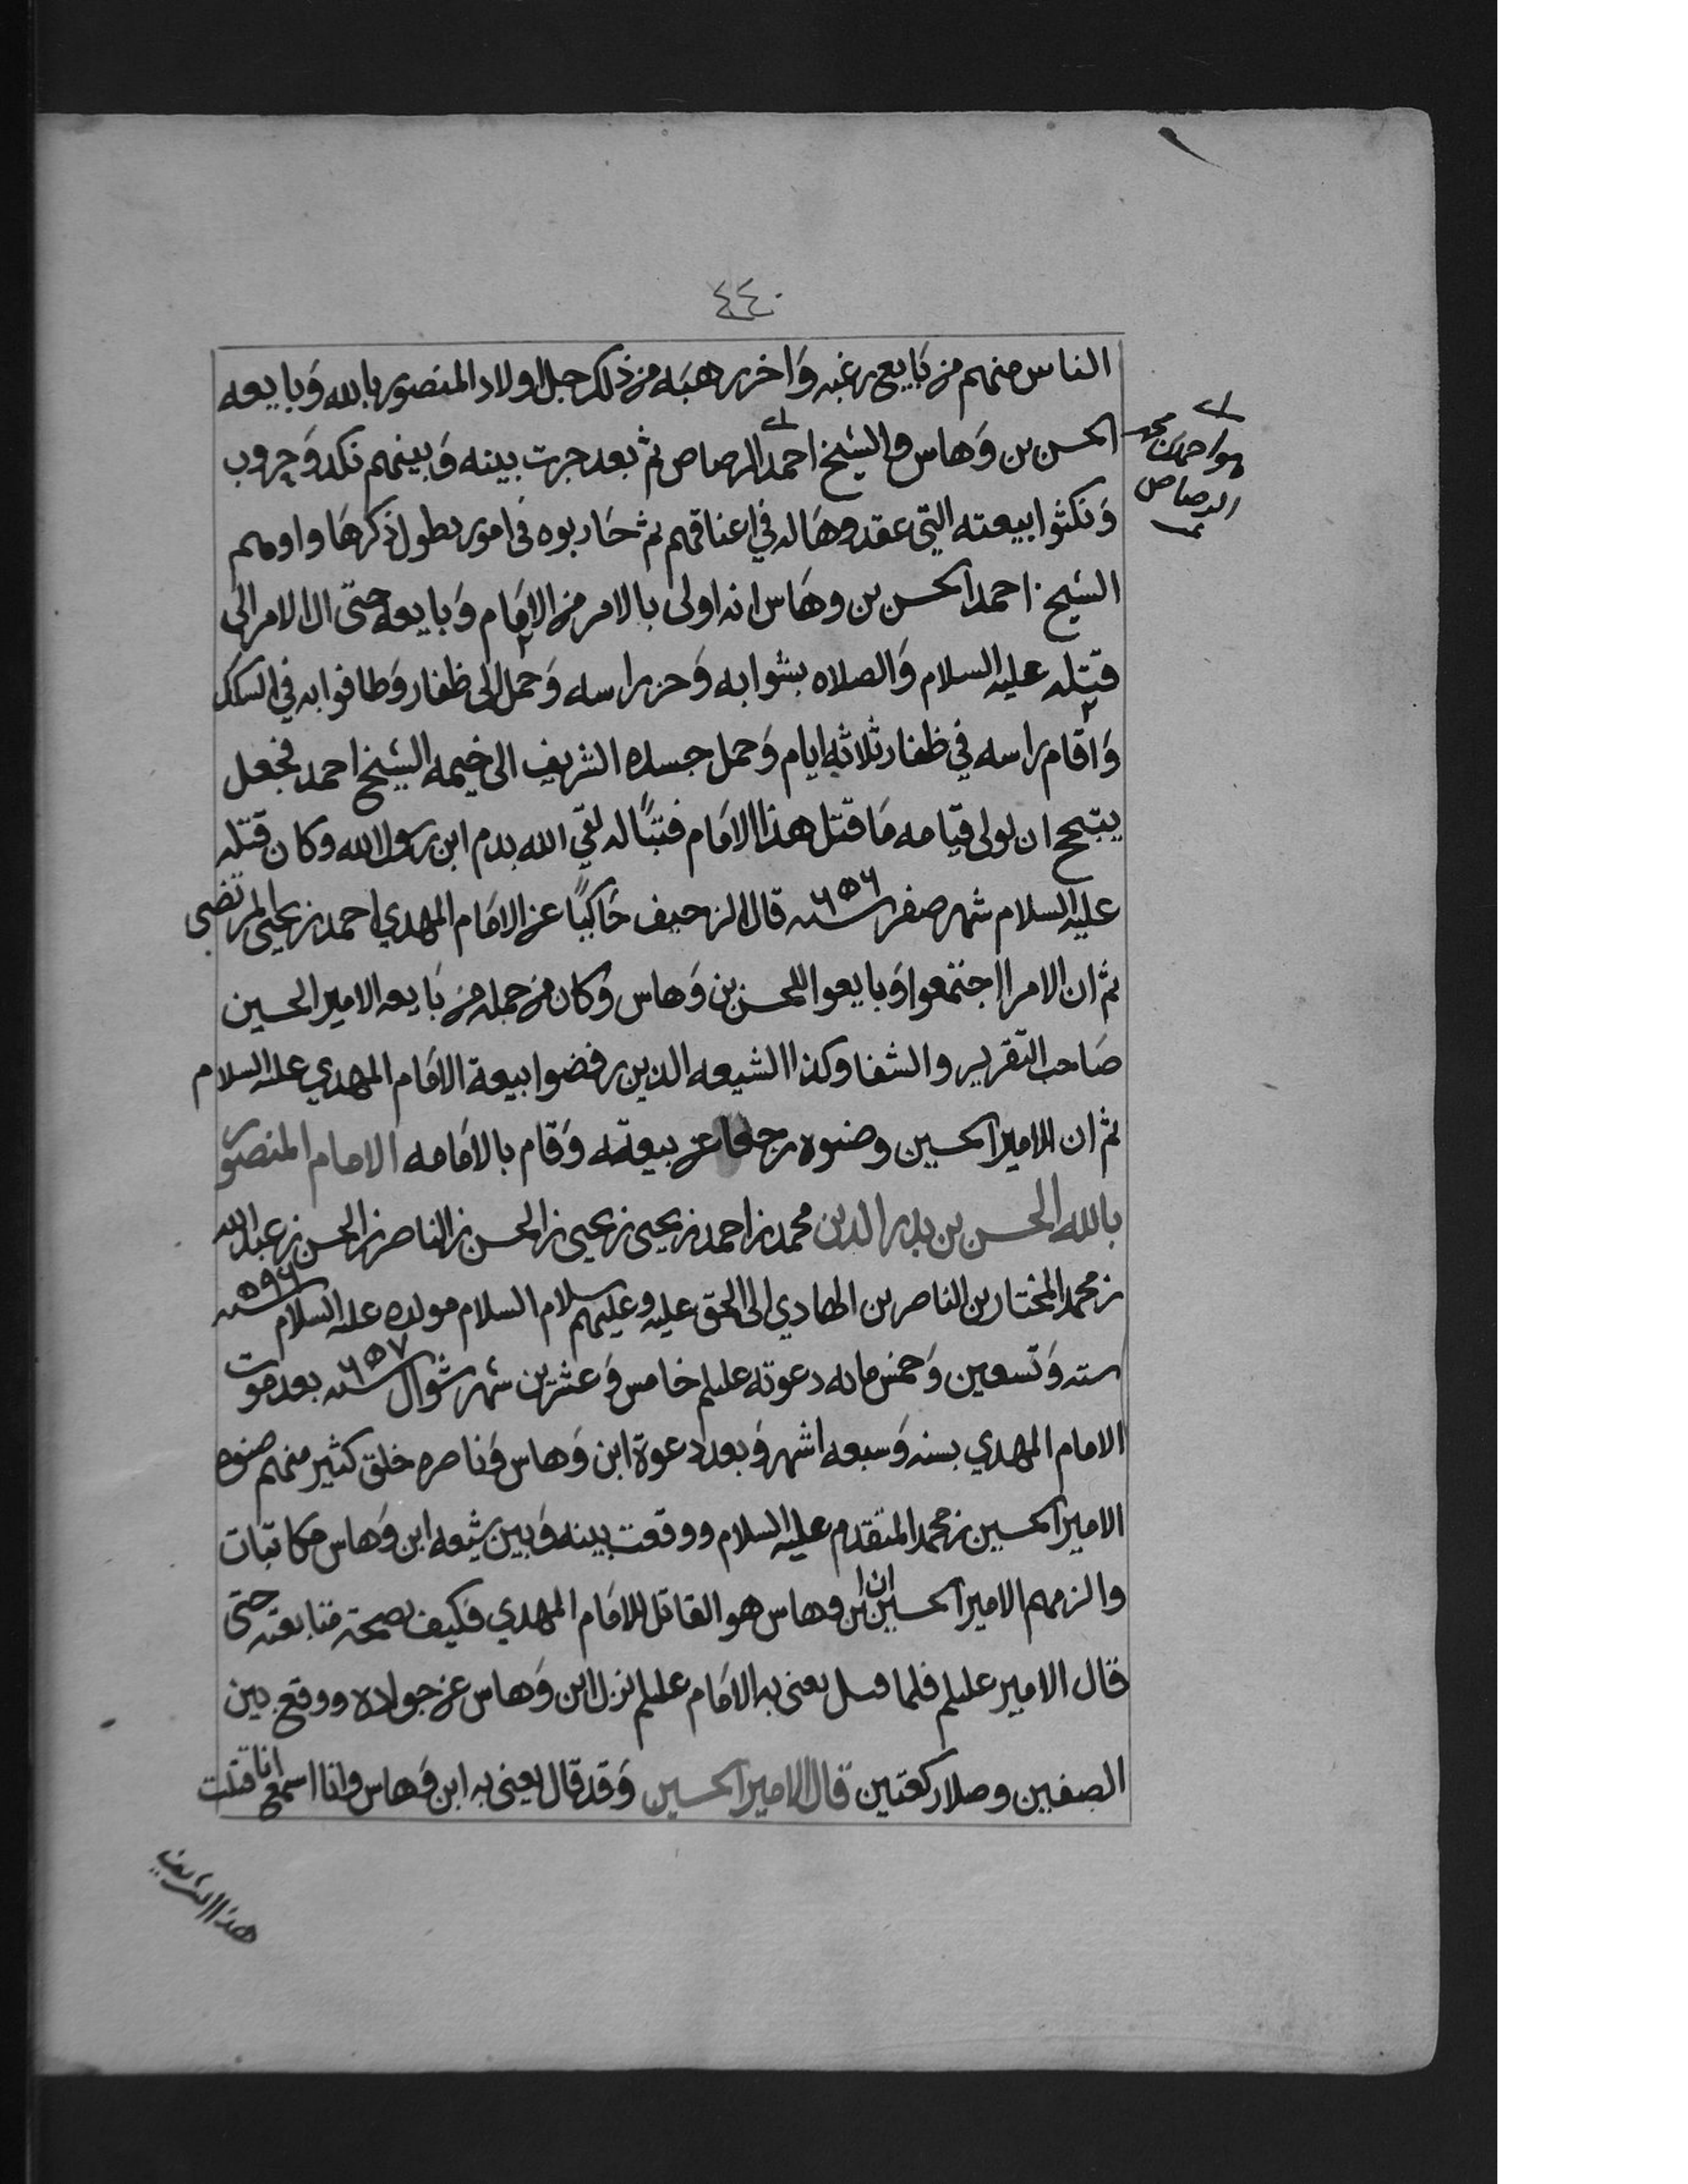 ٤٤٠
الناس منهم من بَايع رغبه وَاخر رهبَه من ذلك جل اولاد المنصور بالله وَبايعه
الحسن بن وَهاس والشيخ احمد الرصاص ثم بعد جرت بينه وَبينهم نكد وَحروب
هو احمد بن محمد
الرصاص
وَنكثوا بيعته التي عقدوهَا له في اعناقهم ثم حَاربوه في امور يطول ذكرهَا واوهم
الشيخ احمد الحسن بن وهَاس انه اولى بالامر من الامَام وَبايعه حتى ال الامر الى
قتله عليه السلام وَالصلاه بشوابه وَحز راسه وَحمل الى ظفار وَطافوا به في السكك
وَاقام راسه في ظفار ثلاثه ايام وَحمل جسده الشريف الى خيمه الشيخ احمد فجعل
يتبجح ان لولى قيامه مَا قتل هذا الامَام فتبًا له لقي الله بدم ابن رسول الله وكان قتله
عليه السلام شهر صفر سنه ٦٥٦ قال الزحيف حَاكيًا عن الامَام المهدي احمد بن يحيى المرتضى
ثم ان الامرا اجتمعوا وَبايعوا للحسن بن وَهاس وَكان من جمله من بَايعه الامير الحسين
صَاحب التقرير والشفا وكذا الشيعه الذين رفضوا بيعة الامَام المهدي عليه السلام
ثم ان الامير الحسين وصنوه رجعا عن بيعته وَقام بالامَامه الامام المنصور
بالله الحسن بن بدر الدين محمد بن احمد بن يحيى بن يحيى بن الحسن بن الناصر بن الحسن بن عبدالله
بن محمد المختار بن الناصر بن الهادي الى الحق عليه وعليهم سلام السلام مولده عليه السلام سنه ٥٩٦
سته وَتسعين وَخمس مايه دعوته عليلم خامس وَعشرين شهر شوال سنه ٦٥٧ بعد موت
الامام المهدي بسنه وَسبعه اشهر وَبعد دعوة ابن وَهاس وَناصره خلق كثير منهم صنوه
الامير الحسين بن محمد المتقدم عليه السلام ووقعت بينه وَبين شيعه ابن وَهاس مكاتبات
والزمهم الامير الحسين ان ابن وهاس هو القاتل للامَام المهدي فكيف بصحة متابعته حتى
قال الامير عليلم فلما قتل يعنى به الامَام عليلم نزل ابن وَهاس عن جواده ووقع بين
الصفين وصلا ركعتين قال الامير الحسين وَقد قال يعنى به ابن وَهاس وانا اسمع انا قتلت
هذا الشريف